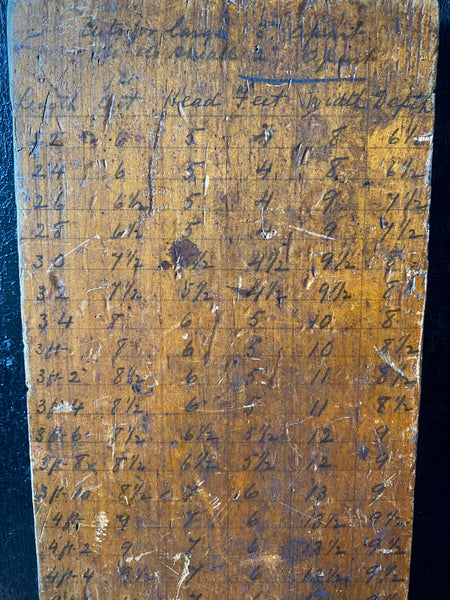 Cuts for large 6" Apart
2" Apart
Length Head Feet Width Depth
22 6 5 8 6½
24 6 5 4 8 6½
26 6½ 5 4 9 7½
28 6½ 5 9 7½
30 7½ 5½ 4½ 9½ 8
32 7½ 5½ 4½ 9½ 8
34 8 6 5 10 8
3ft 8 6 5 10 8½
3ft-2 8½ 6 5 11 8½
3ft-4 8½ 6 5 11 8½
3ft-6 8½ 6½ 5½ 12 9
3ft-8 8½ 6½ 5½ 12 9
3ft-10 8½ 7 6 13 9
4ft 9 7 6 13½ 9½
4ft-2 9 7 6 13½ 9½
4ft-4 9½ 7 6 13½ 9½